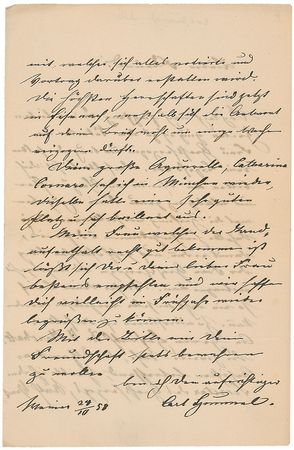 mit welcher sich alles notirte und
Vortrag darüber erstatten wird.
Die höchsten Herrschaften sind jetzt
in Eisenach, weßhalb sich die Antwort
auf Dein Brief wohl um einige Wochen
verzögern dürfte.
Dein große Aquarelle, Catharina
Cornaro sah ich in München wieder,
dieselbe hatte einen sehr guten
Platz u. sah brillant aus.
Meine Frau welcher der Land-
aufenthalt recht gut bekommen ist
läßt sich Dir u. Deiner lieben Frau
bestens empfehlen und wir hoffen
Dich vielleicht im Frühjahr wieder
begrüßen zu können.
Mit der Bitte mir Dein
Freundschaft stets bewahren
zu wollen
bin ich Dein aufrichtiger
Weimar 24/10 58 Carl Hummel.